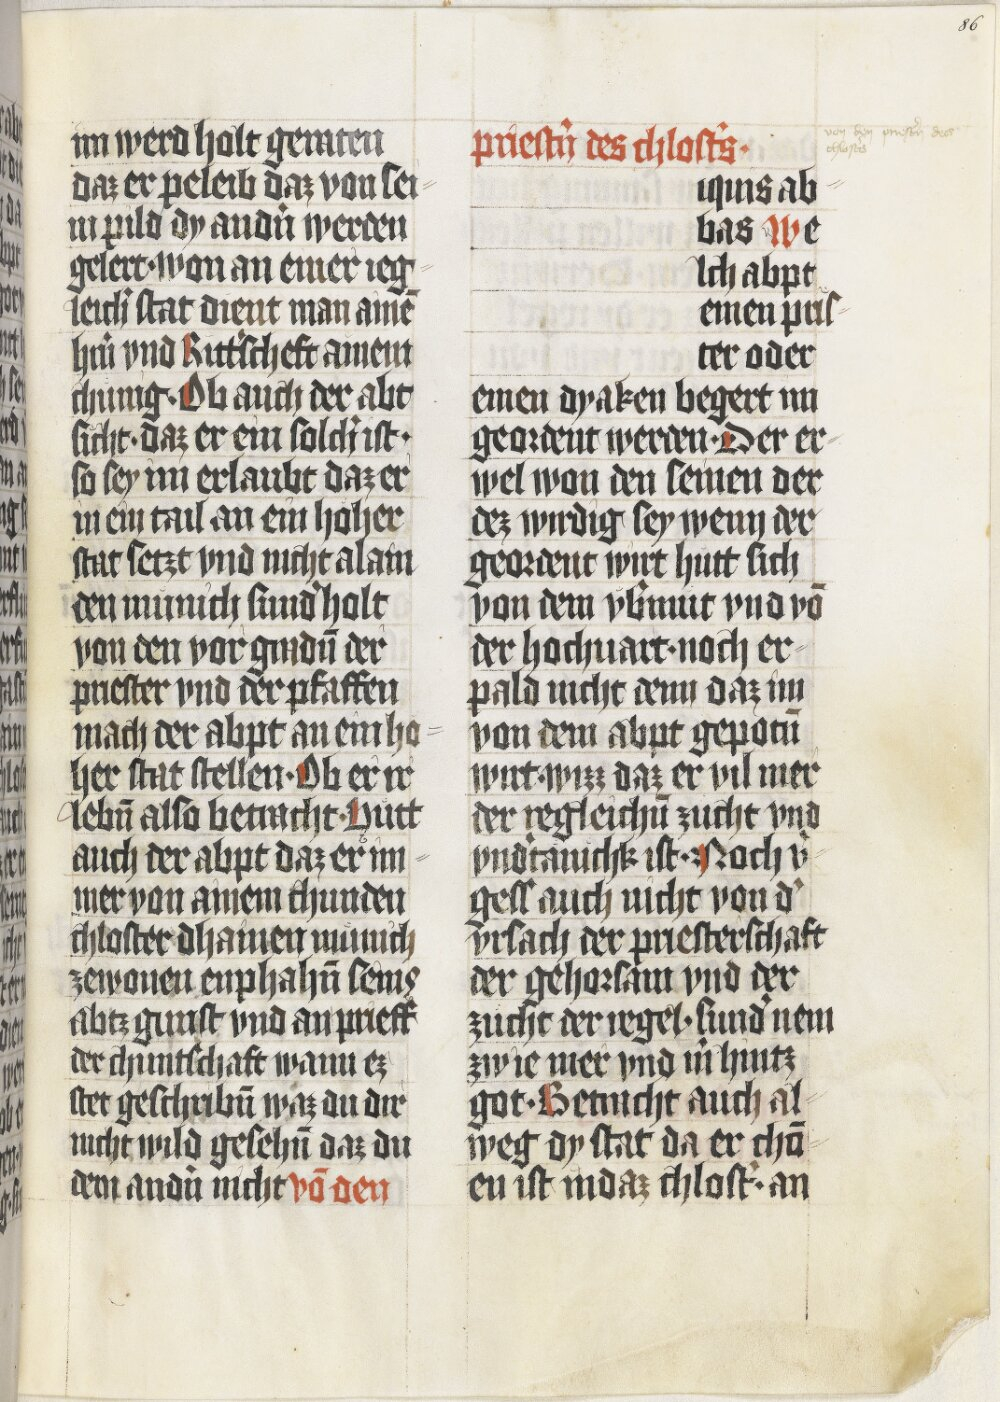 86
im werd holt geraten
daz er peleib daz von sei⸗
m pild dy andn̄ werden
gelert · won an einer ieg⸗
leich̄ stat dient man ainē
hrn̄ vnd Ritt̓scheft ainem
chunig · Ob auch der abt
sicht · daz er ein solch̓ ist ·
so sey im erlaubt daz er
in ein tail an ein hoher
stat setzt vnd nicht alain
den munich sund̓ holt
von den vor gnadn̄ der
priester vnd der pfaffen
mach der abpt an ein ho⸗
her stat stellen · Ob er ir
lebn̄ also betracht · Hutt
auch der abpt daz er im⸗
mer von ainem chunden
chloster dhainen munich
zewonen enphahn̄ seins
abtz gunst vnd an prieff
der chuntschaft wann ez
stet geschribn̄ waz du dir
nicht wild gesehn̄ daz du
dem andn̄ nicht vō den
priestn̄ des chlost̓s ·
von den priestn̄ des
chlost̓s
iquis ab⸗
bas We
lch abpt
einen pris⸗
ter oder
einen dyaken begert im
geordent werden · Der er⸗
wel won den seinen der
dez wirdig sey wenn der
geordent wirt hutt sich
von dem vb̓mut vnd vō
der hochuart · noch er⸗
pald nicht denn daz im
von dem abpt gepotn̄
wirt · wizz daz er vil mer
der regleichn̄ zucht vnd
vnd̓tanichk ist · Noch v̓⸗
gess auch nicht von d̓
vrsach der priesterschaft
der gehorsam vnd der
zucht der regel · sund̓ nem
zw ie mer vnd m̓ hintz
got · Betracht auch al⸗
weg dy stat da er chō⸗
en ist in daz chlost̓ · an